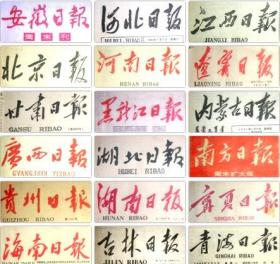 安徽日報
周末刊
河北日報
HEBEI RIBAO
江西日報
JIANGXI RIBAO
北京日報
河南日報
HENAN RIBAO
遼寧日報
LIAONING RIBAO
甘肃日報
GANSU RIBAO
黑龍江日報
内蒙古日報
廣西日報
GVANGJSIH YIZBAO
湖北日報
HUBEI RIBAO
南方日報
周末扩大版
貴州日報
GUIZHOU RIBAO
湖南日報
HUNAN RIBAO
寧夏日報
NINGXIA RIBAO
海南日報
吉林日報
JILIN RIBAO
青海日報
QINGHAI RIBAO